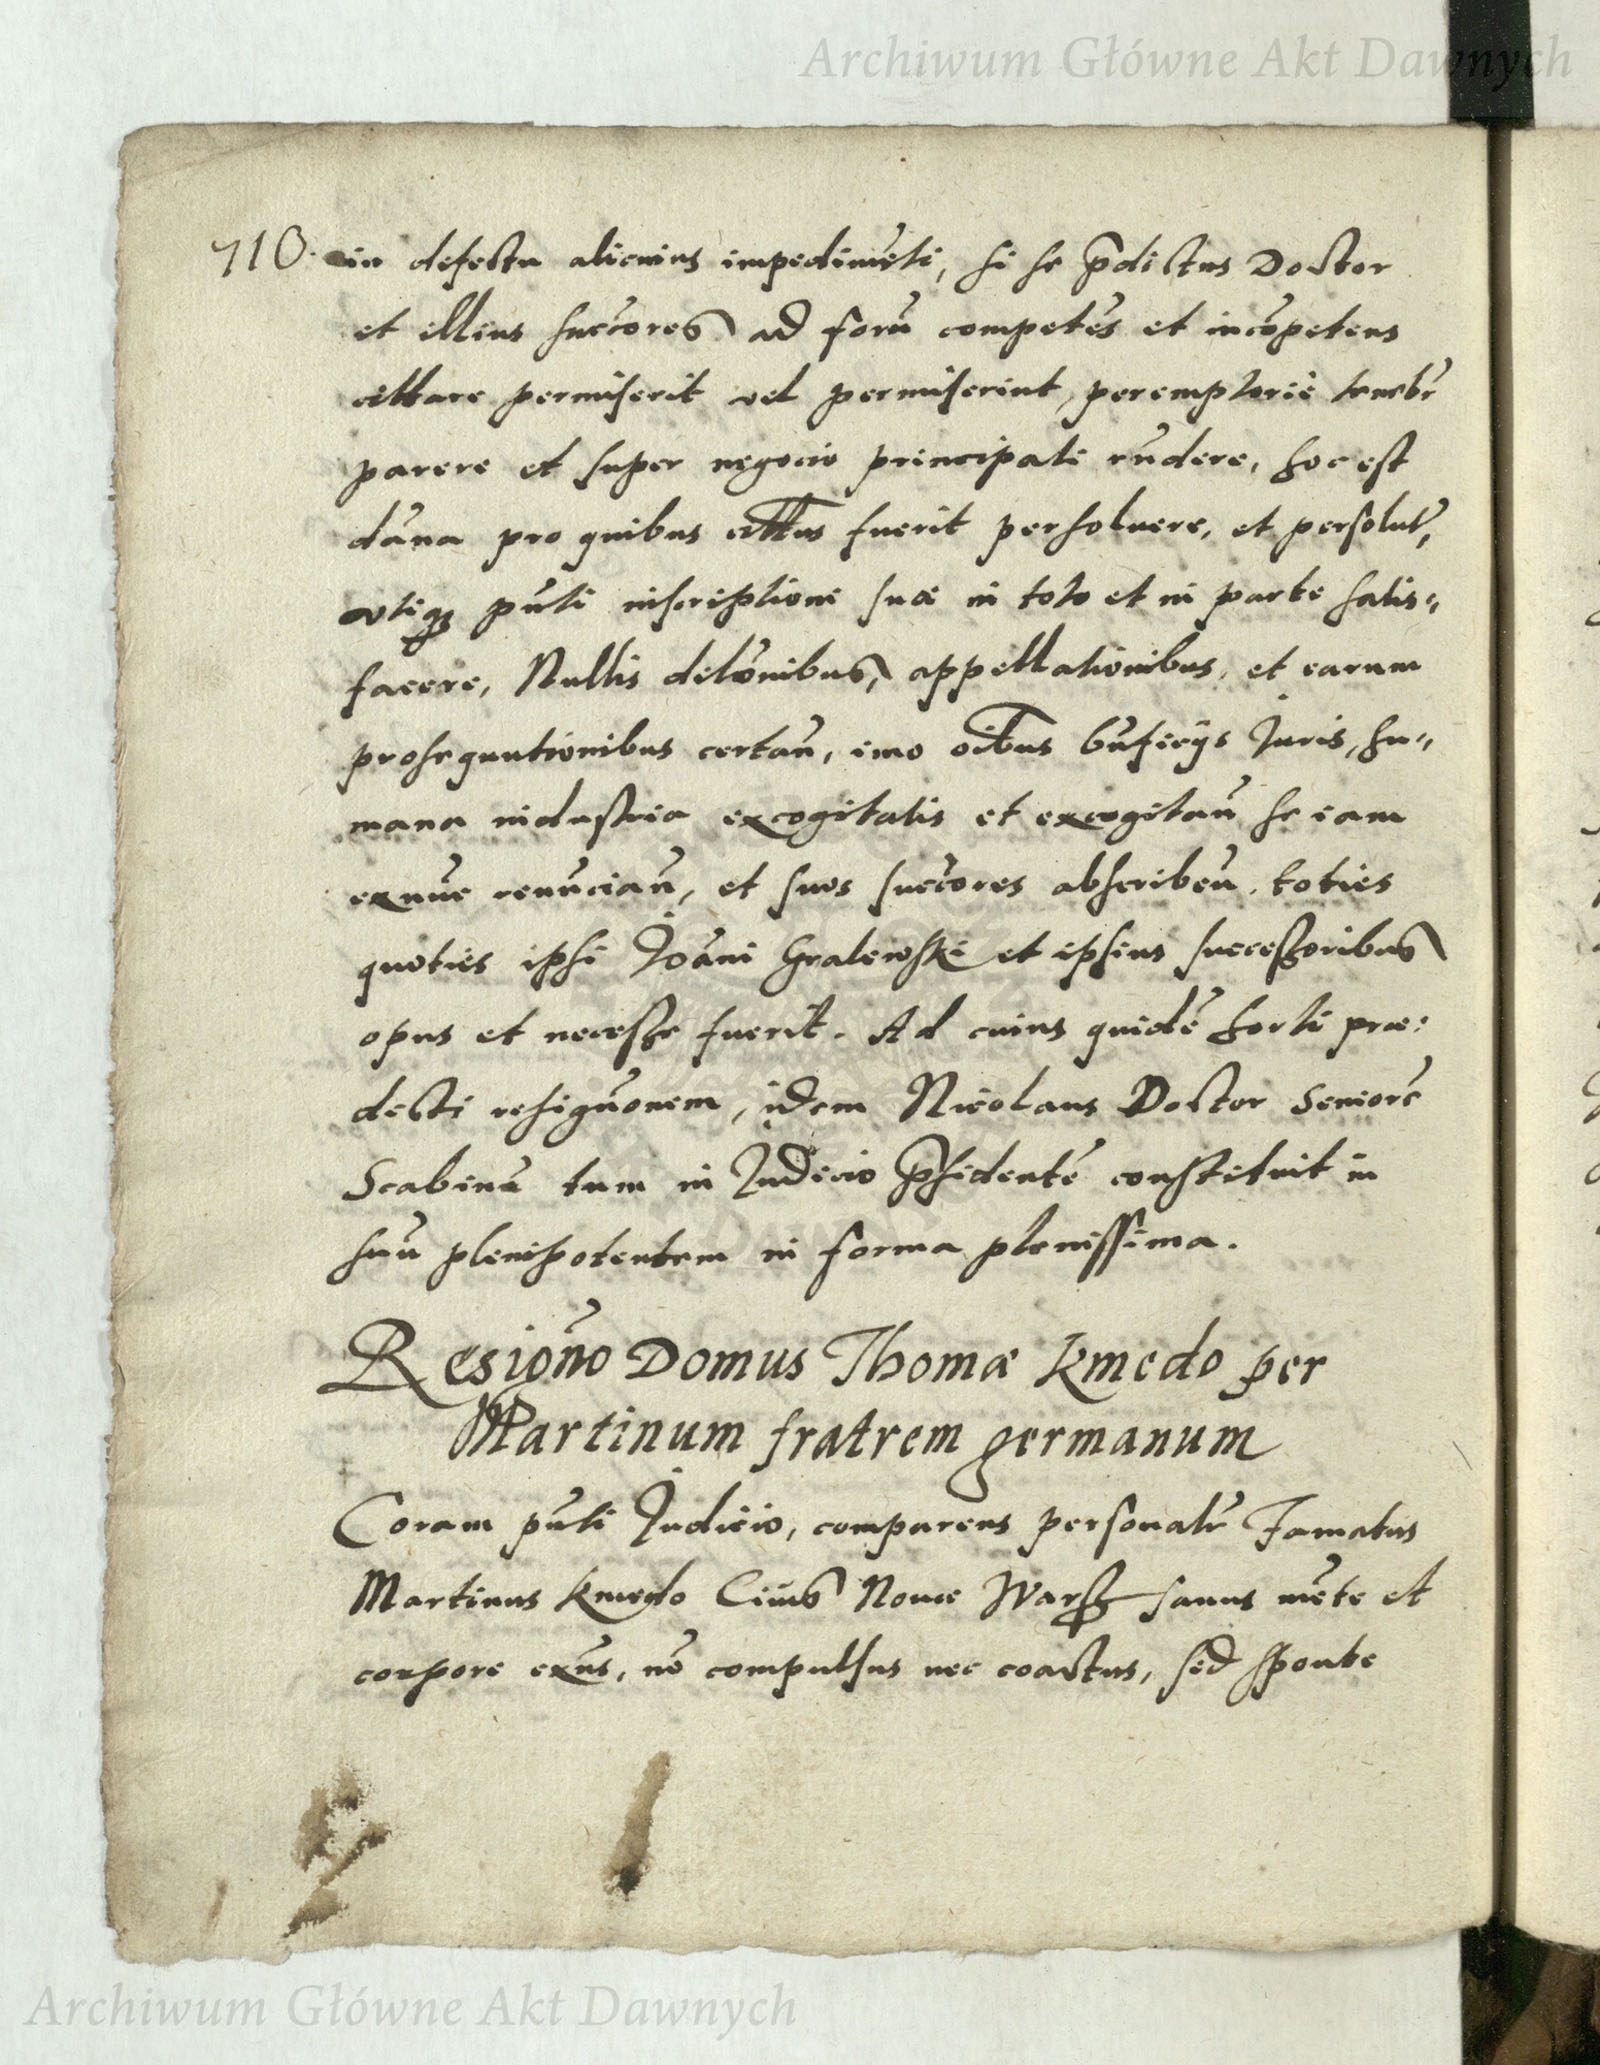 Archiwum Główne Akt Dawnych
710. in defectu alicuius impedimēti, si se p̄dictus Doctor
et illius succ̄ores ad forū competēs et incōpetens
cittare permiserit vel permiserint, peremptorie teneb̄r
parere et super negocio principali rn̄dere, hoc est
dāna pro quibus citt̄us fuerit persoluere, et persolut̄,
vtiqꝫ pn̄ti inscriptioni suæ in toto et in parte satis=
facere, Nullis dilōnibus, appellationibus, et earum
prosequutionibus certan̄, imo oībus bn̄ficijs Juris, hu=
mana industria excogitatis et excogitan̄ se iam
exnūc renuncian̄, et suos succ̄ores abscriben̄, toties
quoties ipsi Joāni Gralewski et ipsius successoribus
opus et necesse fuerit. Ad cuius quidē horti præ=
dicti resign̄onem, idem Nicolaus Doctor Seniorē
Scabinū tum in Judicio p̄sidentē constituit in
suū plenipotentem in forma plenissima.
Resign̄o Domus Thomæ Kmedo per
Martinum fratrem germanum
Coram pn̄ti Judicio, comparens personalr̄ Famatus
Martinus Kmedo Ciuis Nouæ Warsz sanus mēte et
corpore exn̄s, nō compulsus nec coactus, sed sponte
Archiwum Główne Akt Dawnych